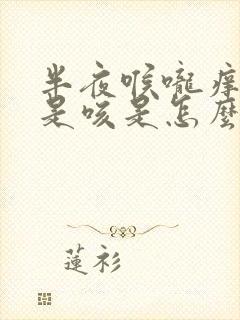 半夜喉嚨痒
是咳是怎麼
蓮衫